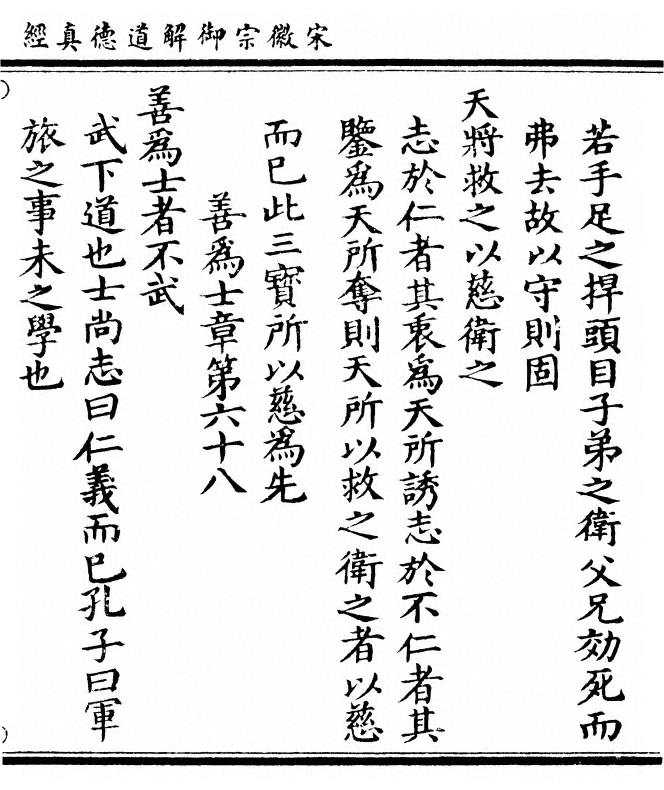 宋徽宗御解道德真經
若手足之捍頭目子弟之衛父兄効死而
弗去故以守則固
天將救之以慈衛之
志於仁者其衷爲天所誘志於不仁者其
鑒爲天所奪則天所以救之衛之者以慈
而已此三寶所以慈爲先
善爲士章第六十八
善爲士者不武
武下道也士尚志曰仁義而已孔子曰軍
旅之事未之學也